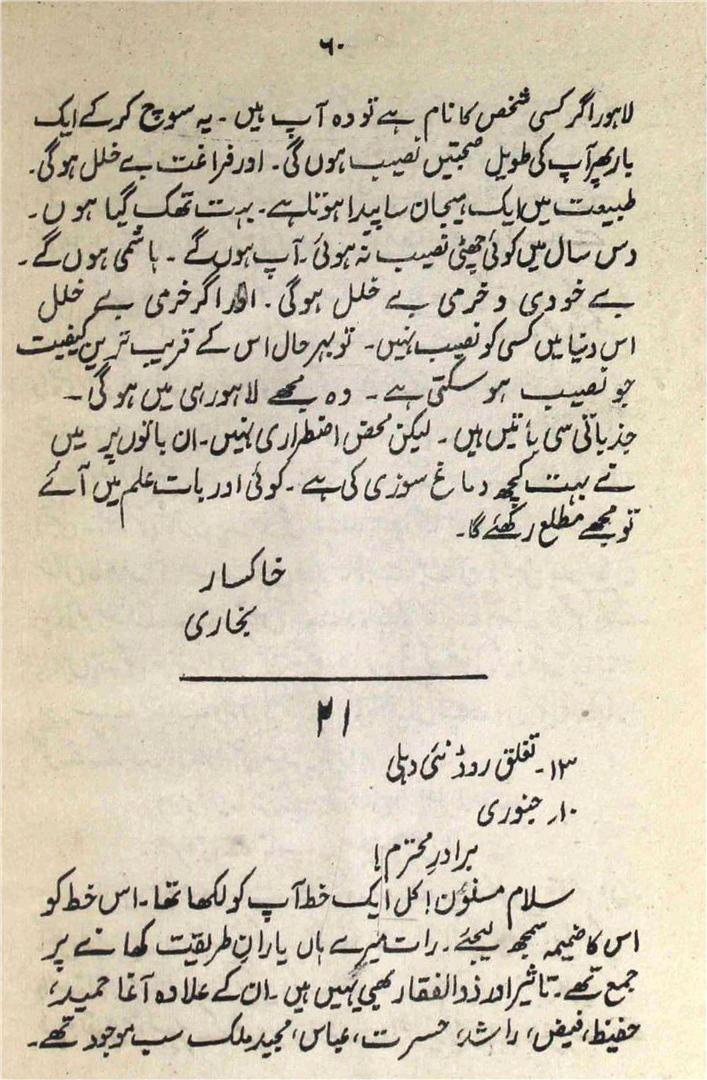 ۶۰
لاہور اگر کسی شخص کا نام ہے تو وہ آپ ہیں ۔ یہ سوچ کر کے ایک
بار پھر آپ کی طویل صحبتیں نصیب ہوں گی ۔ اور فراغت بے خلل ہوگی۔
طبیعت میں ایک ہیجان سا پیدا ہوتا ہے ۔ بہت تھک گیا ہوں ۔
دس سال میں کوئی چھٹی نصیب نہ ہوئی ۔ آپ ہوں گے ۔ ہاشمی ہوں گے ۔
بے خودی و خرمی بے خلل ہوگی ۔ اور اگر خرمی بے خلل
اس دنیا میں کسی کو نصیب نہیں ۔ تو بہر حال اس کے قریب ترین کیفیت
جو نصیب ہو سکتی ہے ۔ وہ مجھے لاہور ہی میں ہو گی ۔
جذباتی سی باتیں ہیں ۔ لیکن محض اضطراری نہیں ۔ ان باتوں پر میں
نے بہت کچھ دماغ سوزی کی ہے ۔ کوئی اور بات علم میں آئے
تو مجھے مطلع رکھئے گا ۔
خاکسار
بخاری
۲۱
۱۳۔ تغلق روڈ نئی دہلی
۱۰؍ جنوری
برادرِ محترم !
سلام مسنون ! کل ایک خط آپ کو لکھا تھا ۔ اس خط کو
اس کا ضمیمہ سمجھ لیجئے ۔ رات میرے ہاں یارانِ طریقت کھانے پر
جمع تھے ۔ تاثیر اور ذوالفقار بھی یہیں ہیں ۔ ان کے علاوہ آغا حمید ،
حفیظ ، فیض ، راشد ، حسرت ، عباس ، مجید ملک سب موجود تھے ۔